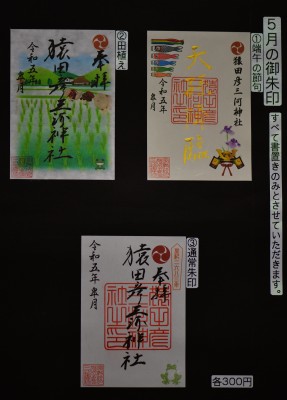 5月の御朱印
①端午の節句
すべて書置きのみとさせていただきます。
猿田彦三河神社
令和五年
皐月
②田植え
奉拝
猿田彦三河神社
令和五年
皐月
③通常朱印
奉拝
猿田彦三河神社
令和五年 皐月
各300円